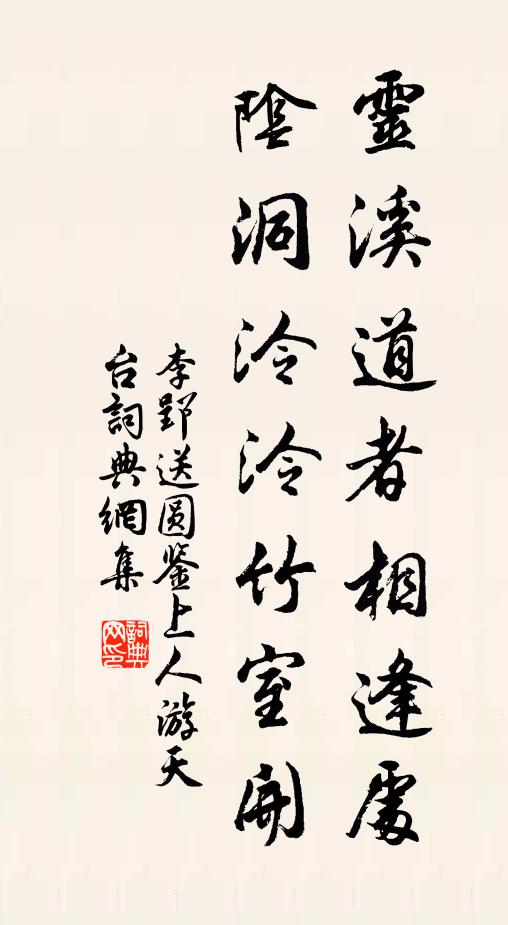 靈溪道者相逢處
陰洞泠泠竹室開
李郢送圓鉴上人游天
台詞典網集
詞典
网印